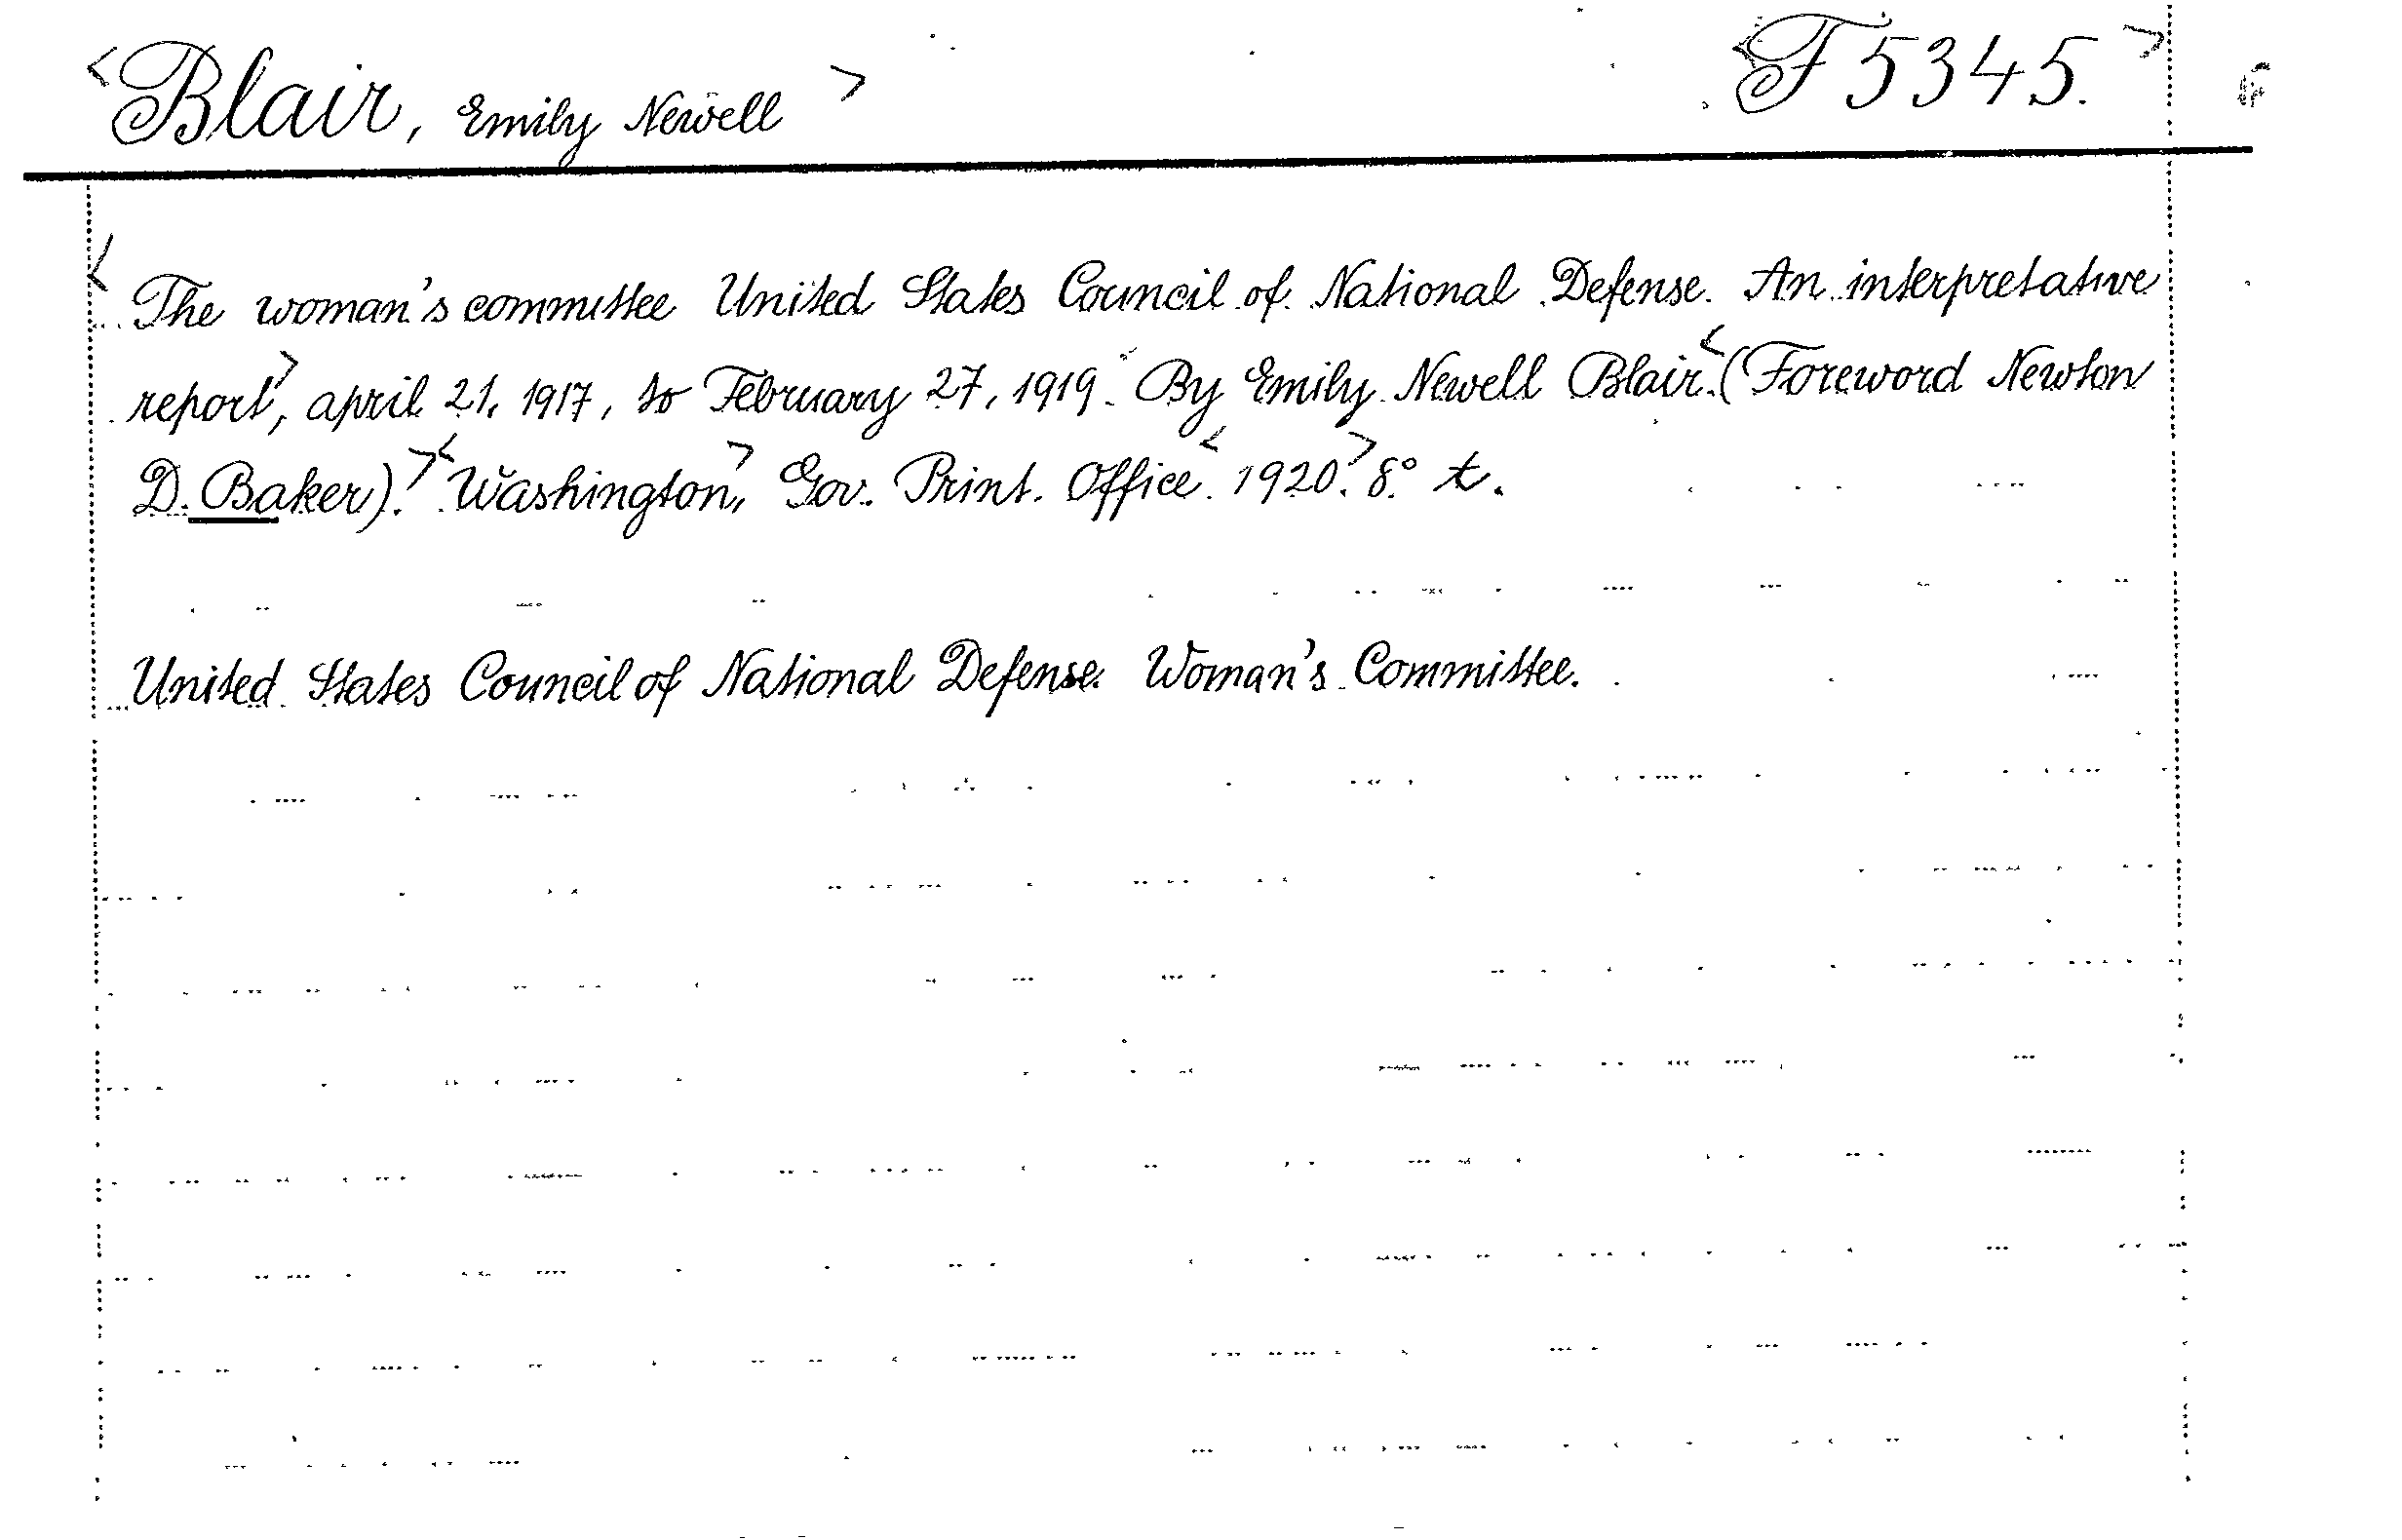 <Blair, Emily Newell> <F 5345.>
<The woman's committee United States Council of National Defense. An interpretative
report>, april 21, 1917, to February 27, 1919. By Emily Newell Blair.<(Foreword Newton
D. Baker).> <Washington>, Gov. Print. Office <1920.> 8.° t.
United States Council of National Defense. Woman's Committee.